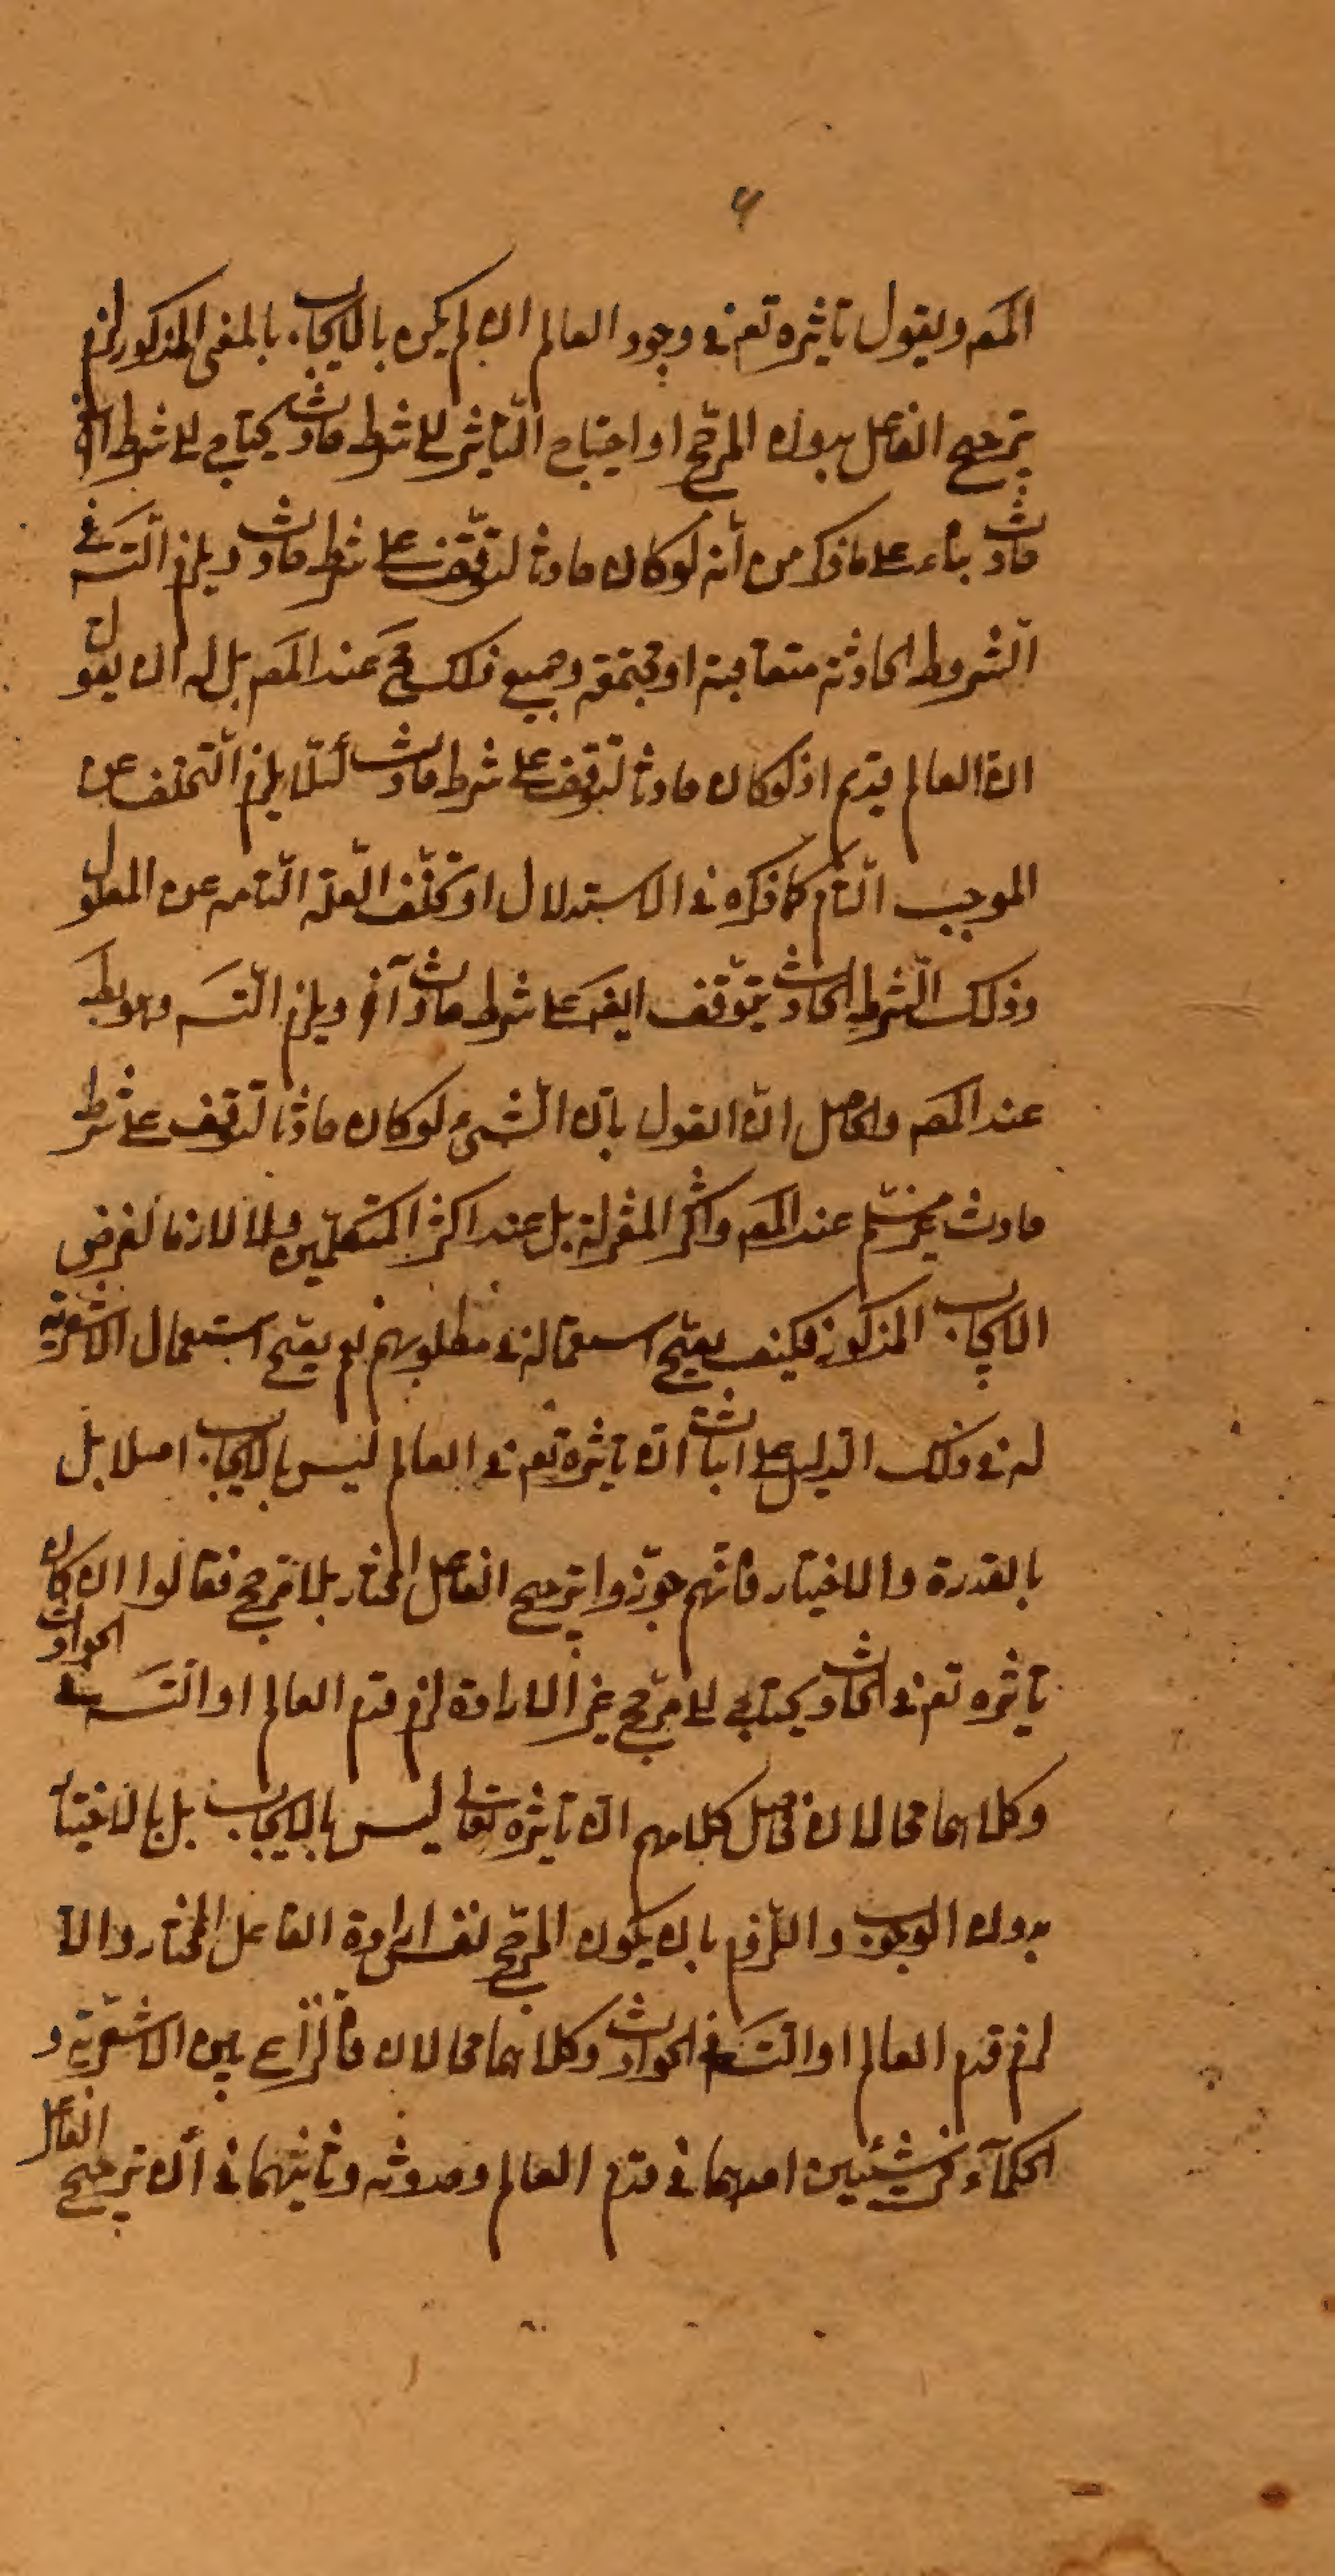 ٦
المصـ ويقول تاثيره تعـ في وجود العالم ان لم يكن بالايجاب بالمعنى المذكور لزم
ترجيح الفاعل بدون المرجّح او احتياج التّاثير الى شرط حادث يحتاج الى شرط آخر
حادث بناء على ما ذكر من أنه لو كان حادثا لتوقّف على شرط حادث ويلزم التّسـ في
الشّروط الحادثة متعاقبة او مجتمعة وجميع ذلك مح عند المصـ بل له ان يقول
انّ العالم قديم اذ لو كان حادثا لتوقّف على شرط حادث لئلّا يلزم التّخلف عن
الموجب التّام كما ذكره في الاستدلال او تخلّف العلّة التّامه عن المعلول
وذلك الشّرط الحادث يتوقّف ايضـ على شرط حادث آخر ويلزم التّسـ وهو بط
عند المصـ والحاصل انّ القول بانّ الشّىء لو كان حادثا لتوقف على شرط
حادث غير مسلّم عند المصـ واكثر المعتزلة بل عند اكثر المتكلّمين ولا لازما لفرض
الايجاب المذكور فكيف يصحّ استعماله في مطلوبهم نعم يصحّ استعمال الاشعرية
له في ذلك الدّليل على اثبات انّ تاثيره تعـ في العالم ليس بالايجاب اصلا بل
بالقدرة والاختيار فانّهم جوّزوا ترجيح الفاعل المختار بلا مرجّح فقالوا ان كان
تاثيره تعـ في الحادث يحتاج الى مرجّح غير الارادة لزم قدم العالم او التّسـ في الحوادث
وكلاهما محالان فحاصل كلامهم انّ تاثيره تعالى ليس بالايجاب بل بالاختيار
بدون الوجوب واللّزوم بان يكون المرجّح نفس ارادة الفاعل المختار والّا
لزم قدم العالم او التّسـ في الحوادث وكلاهما محالان فالنّزاع بين الاشعريّة و
الحكمآء في شيئين احدهما في قدم العالم وحدوثه وثانيهما في أنّ ترجيح الفاعل